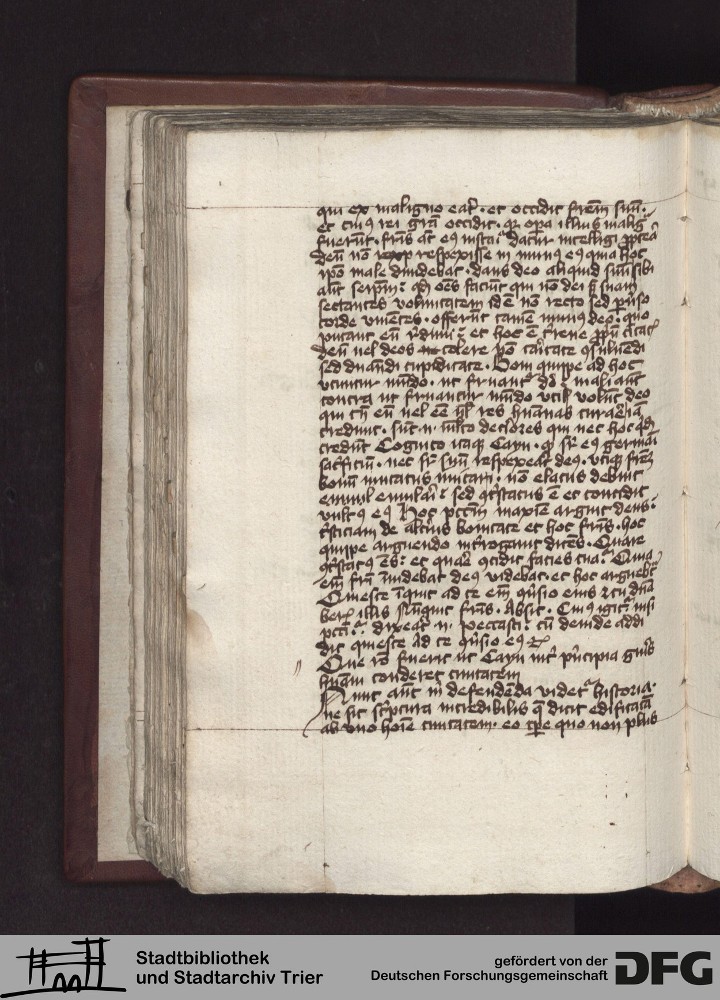 qui ex maligno erat · et occidit frem suu ·
et cuius rei gra occidit · quia opa illius malig
fuerut · fris aut eius iusta · datur intelligi ppterea
deu no respexisse in munus eius quia hoc
ipo male diuidebat · dans deo aliquid suu sibi
aut seipm · qd oes faciut qui no dei sed suam
sectantes voluntatem id e no recto sed puerso
corde viuentes · offerut tamen munus deo · quo
putant eu redimi · et hoc e terrene ppriu ciuitatis
deu uel deos colere no caritate osulendi
sed dnandi cupiditate · Boni quippe ad hoc
vtuntur mundo · ut fruantur deo · mali aut
contra ut fruantur mundo vti volut deo
qui tn eu uel ee uel res huanas curare iam
credunt · sunt n · multo deteriores qui nec hoc qdem
credut Cognito itaque Cayn · q sup eius germani
sacrificiu · nec sup suu respexerat deus · vtique frem
bonu mutatus imitari · no elatus debuit
emulari · sed contristatus e et concidit
vultus eius Hoc pctm maxime arguit deus ·
tristiciam de alterius bonitate et hoc fris · hoc
quippe arguendo interrogauit dicens · Quare
contristatus es · et quare concidit facies tua · Quia
em fri inuidebat deus videbat · et hoc arguebat
Quiesce inquit ad te em conuersio eius et tu dna
beris illius Nunquit fris · Absit · Cuius igitur nisi
pcti · dixerat n · peccasti · tu deinde addi
dit quiesce ad te conuersio eius etc
Que ro fuerit ut Cayn inter principia generis
huani conderet ciuitatem
Nunc aut in defendenda videtur historia ·
ne sit scriptura incredibilis que dicit edificata
ab vno hoie ciuitatem · eo tpe quo non plus
Stadtbibliothek
und Stadtarchiv Trier
gefördert von der
Deutschen Forschungsgemeinschaft
DFG